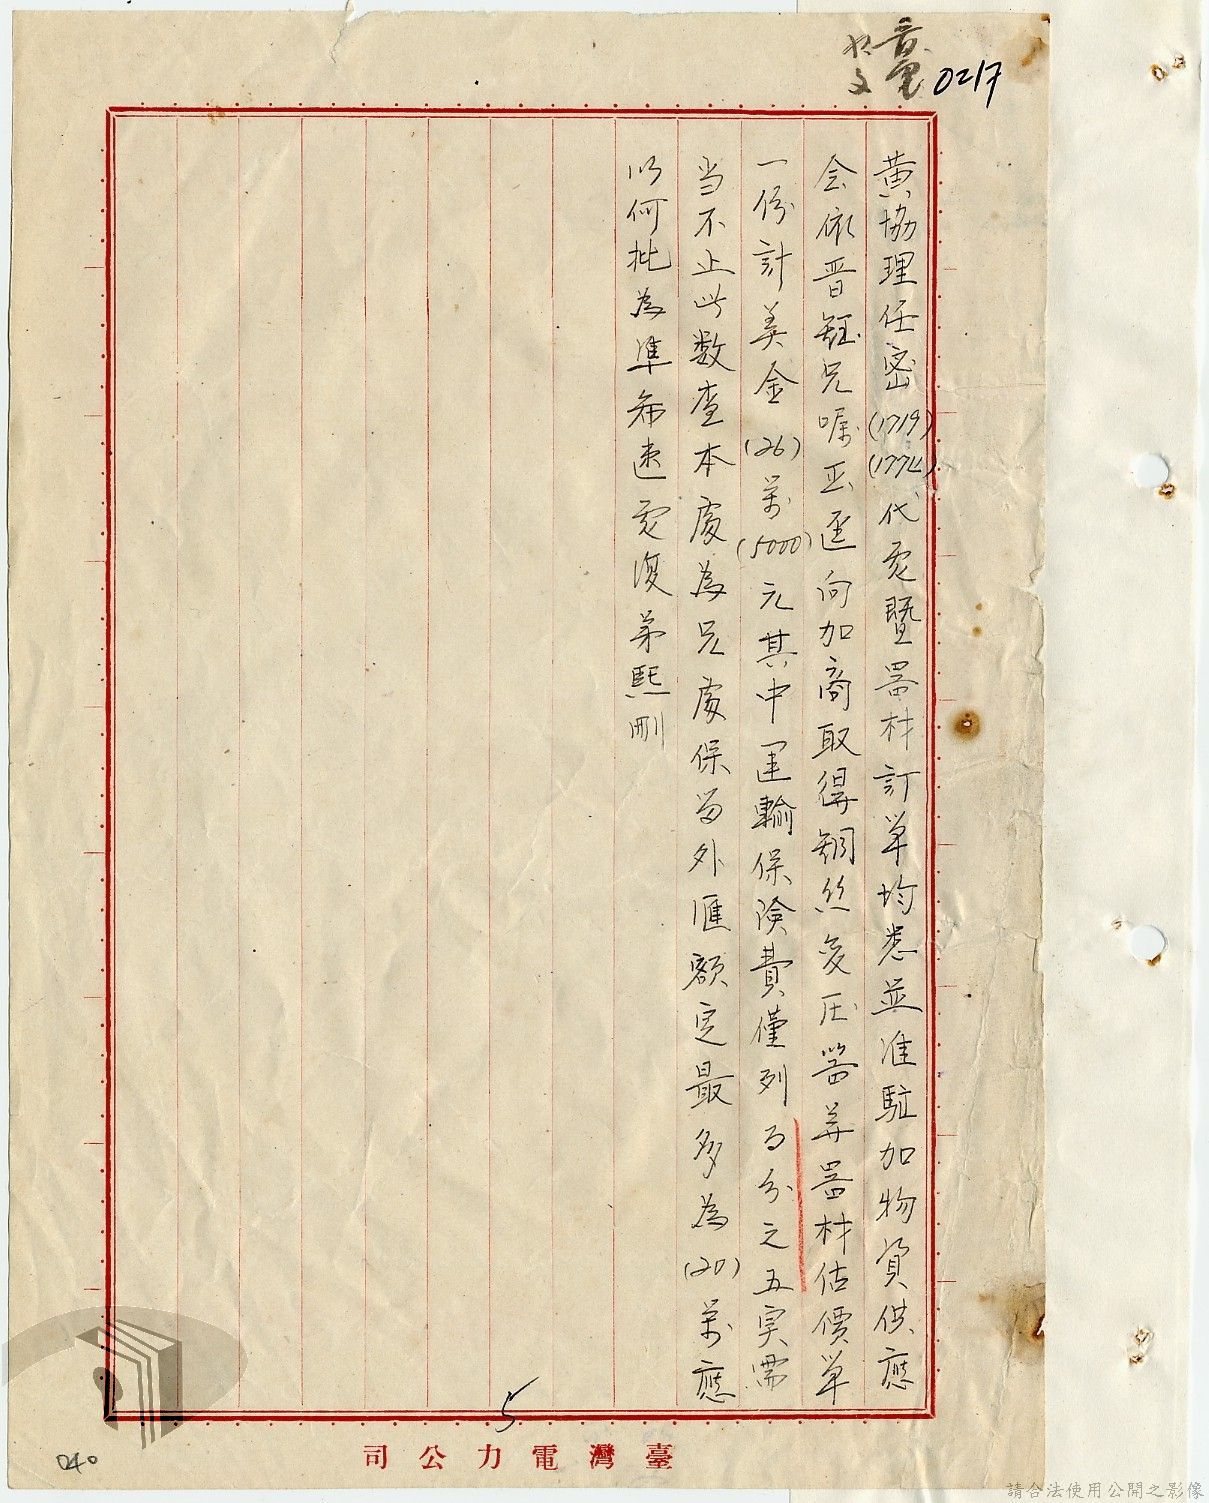 0217
黄協理任密(1719)(1774)代电暨器材訂单均悉並准駐加物資供應
会依晋鈺兄嘱正逕向加商取得銅丝变压器并器材估價单
一份計美金(26)萬(5000)元其中運輸保険費僅列百分之五实需
当不止此数查本處為兄處保留外匯額定最多為(20)萬應
以何批為準希速电復弟熙刪
5
司公力電灣臺
040
請合法使用公開之影像